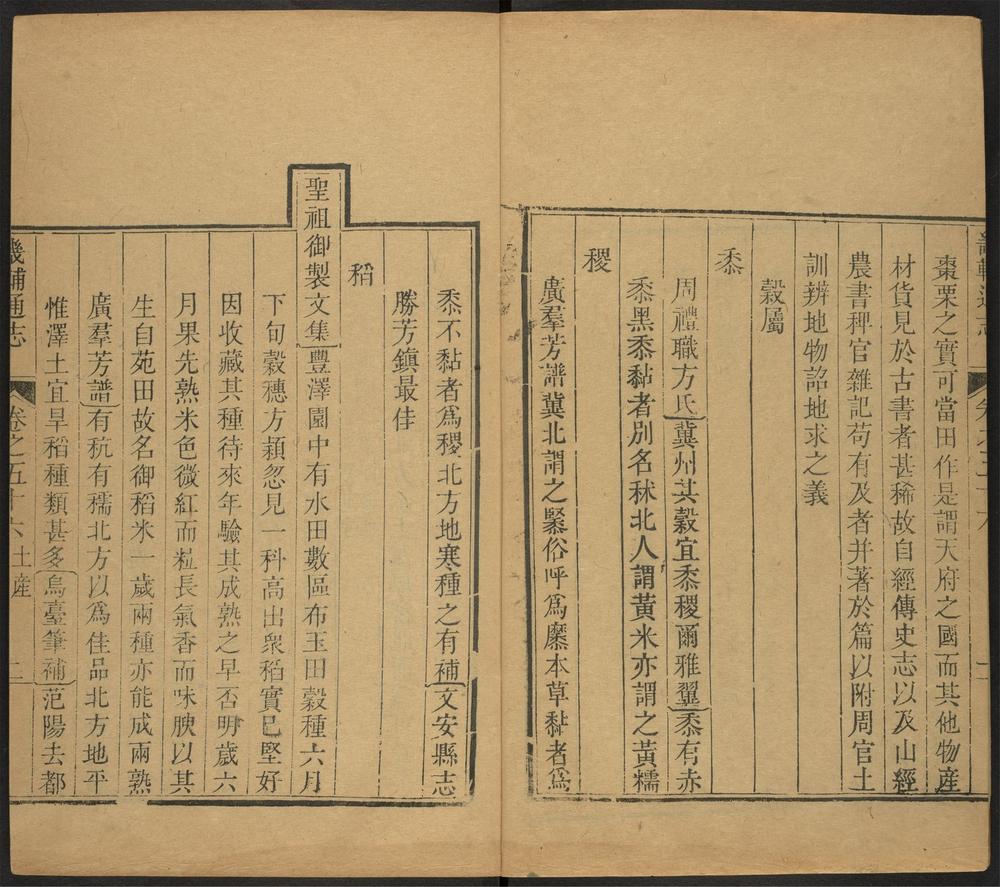 棗栗之實可當田作是謂天府之國而其他物產
材貨見於古書者甚稀故自經傳史志以及山經
農書稗官雜記苟有及者并著於篇以附周官土
訓辨地物詔地求之義
穀屬
黍
周禮職方氏冀州其穀宜黍稷爾雅翼黍有赤
黍黑黍黏者別名秫北人謂黃米亦謂之黃糯
稷
廣羣芳譜冀北謂之䅽俗呼爲穈本草黏者爲
黍不黏者爲稷北方地寒種之有補文安縣志
勝芳鎮最佳
稻
聖祖御製文集豐澤園中有水田數區布玉田穀種六月
下旬穀穗方穎忽見一科高出衆稻實已堅好
因收藏其種待來年驗其成熟之早否明歲六
月果先熟米色微紅而粒長氣香而味腴以其
生自苑田故名御稻米一歲兩種亦能成兩熟
廣羣芳譜有秔有穤北方以爲佳品北方地平
惟澤土宜旱稻種類甚多烏臺筆補范陽去都
畿輔通志 卷之五十六 土産 二